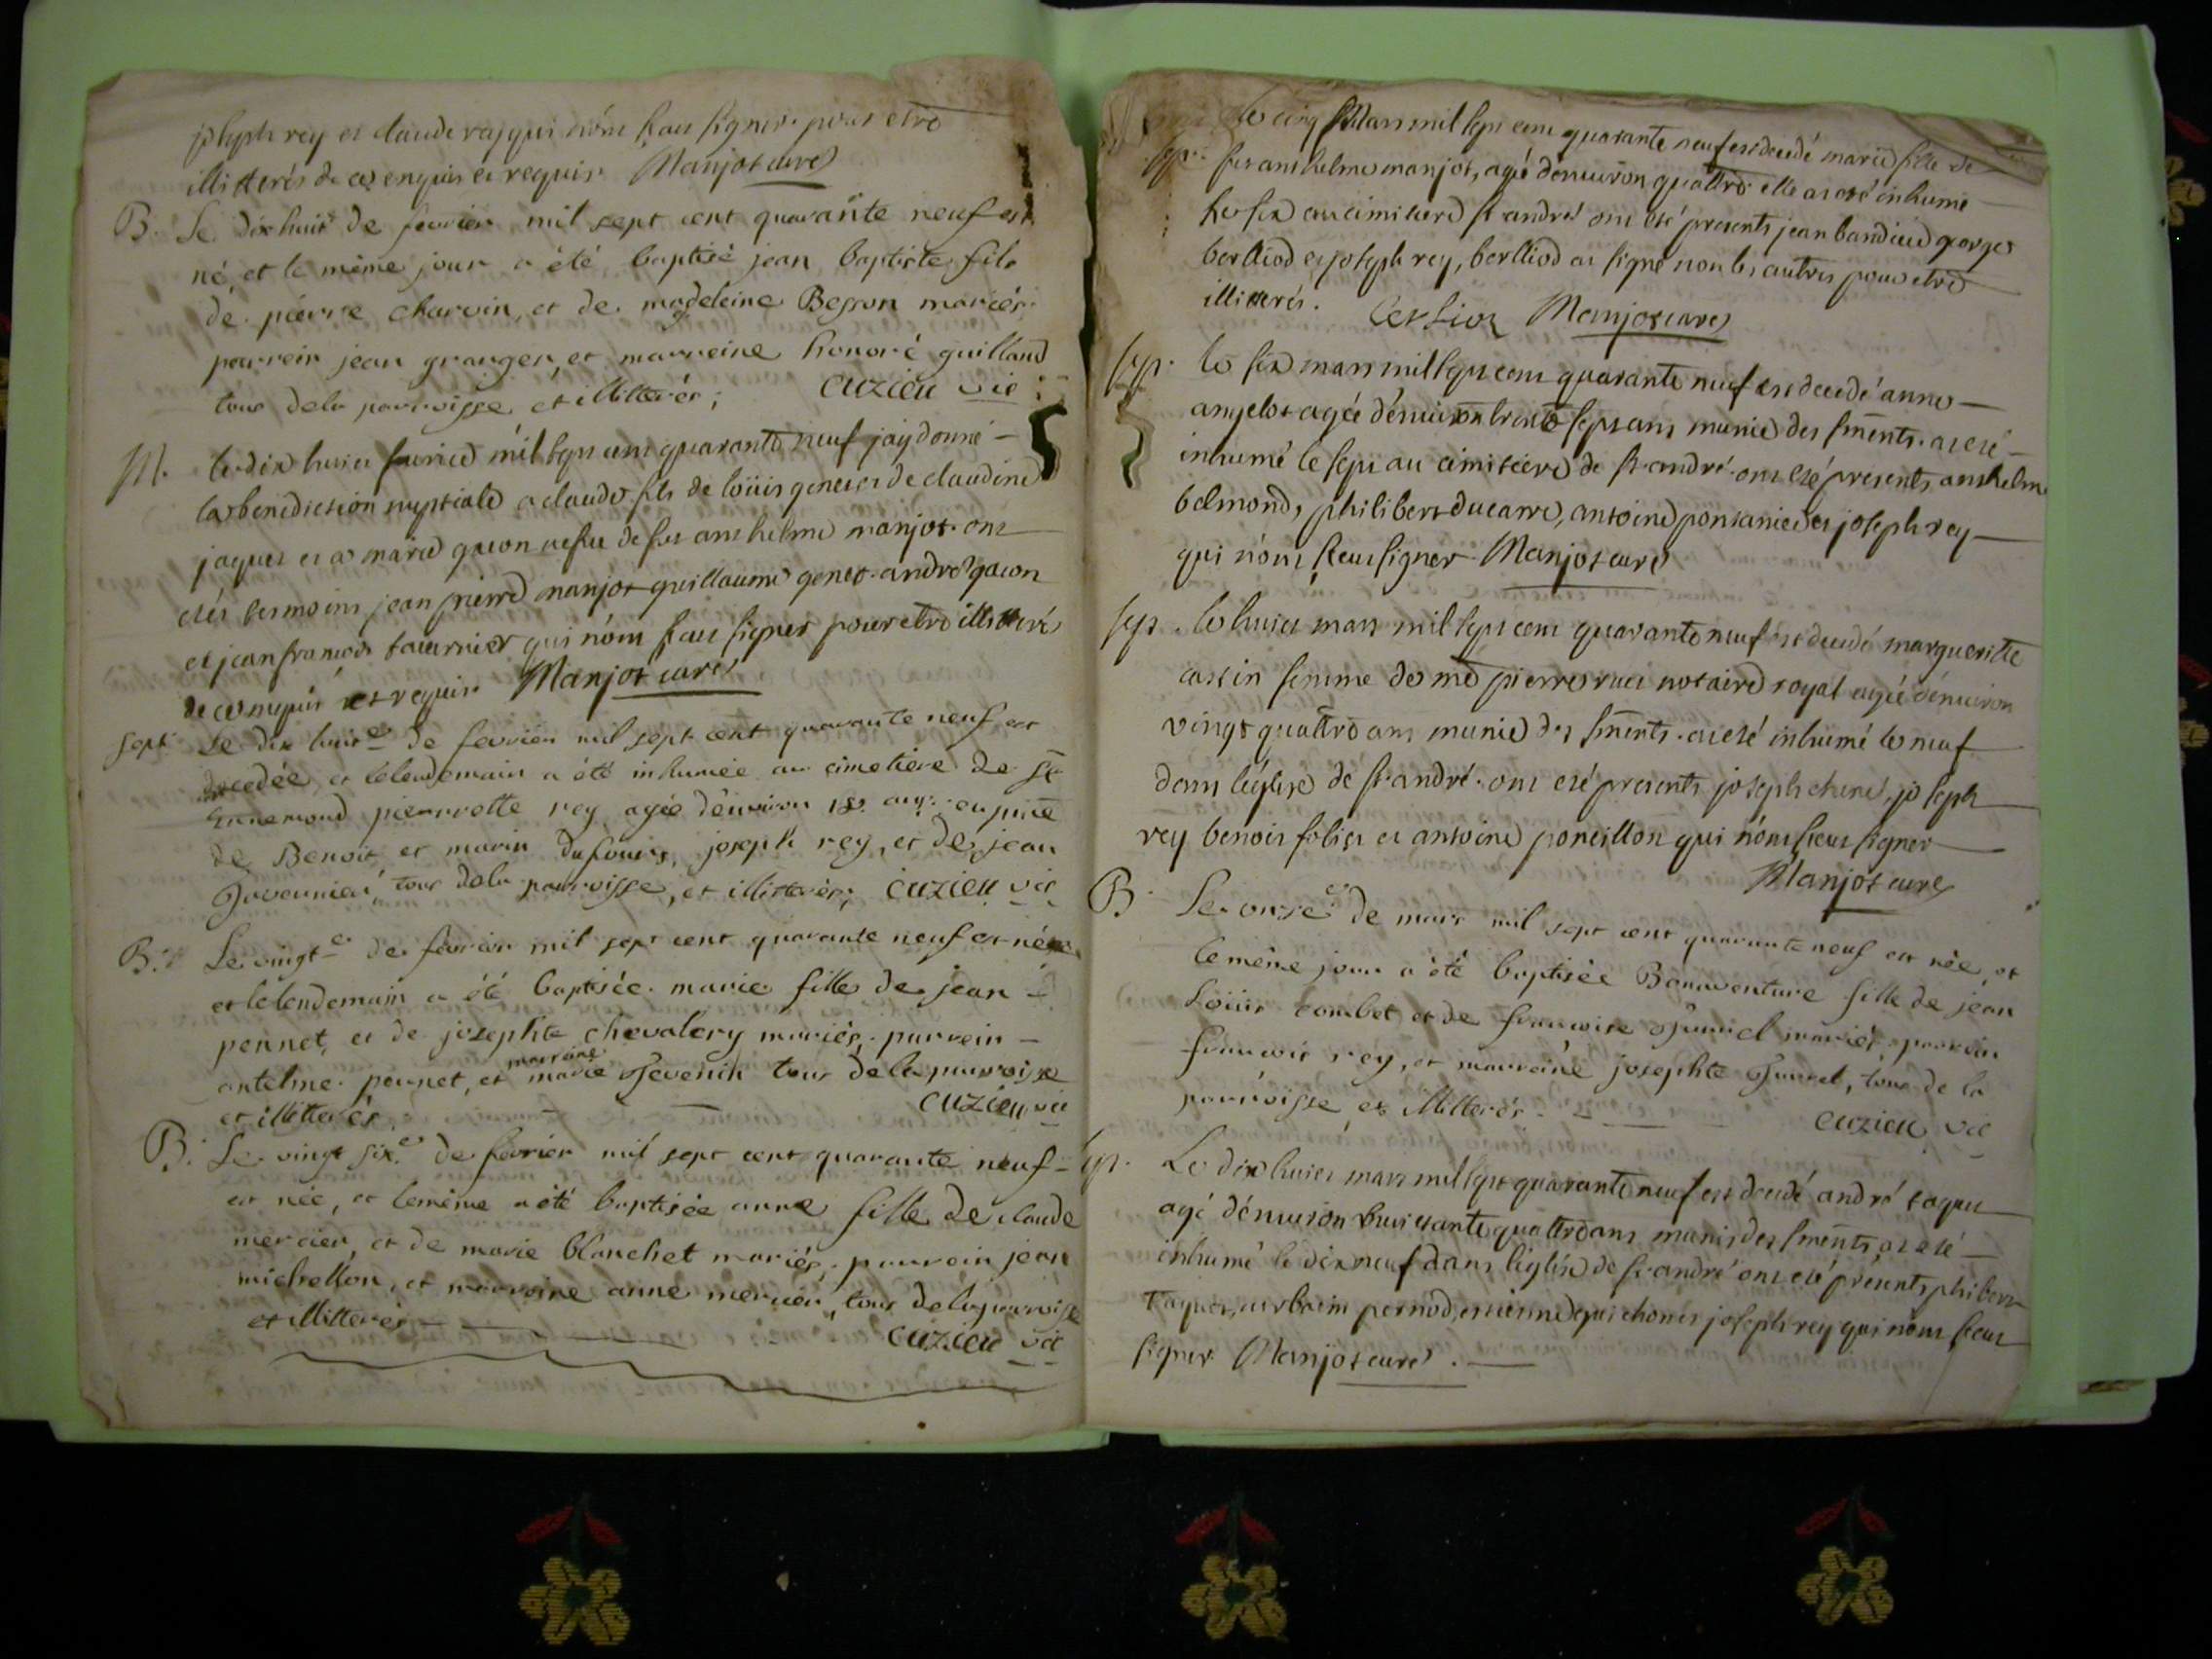 joseph rey et claude rey qui n'ont sceu signer pour etre
illitterés de ce enquis et requis. Manjot curé
B. Le dix huit de fevrier mil sept cent quarante neuf est
né, et le même jour a été baptisé jean baptiste fils
de pierre charvin, et de madeleine Besson mariés.
parrein jean granger, et marreine honoré guilland
tous dela parroisse et illitterés; Cuzieu vic
M. le dix huict fevrier mil sept cent quarante neuf jay donné
la benediction nuptiale a claude fils de loüis genet et de claudine
jaquet et a marie guion de feu anthelme manjot ont
etés tesmoins jean pierre manjot guillaume genet andré gacon
et jean francois tavernier qui n'ont sceu signer pour etre illitteré
de ce enquis et requis Manjot curé
sept. Le dix huit.e de fevrier mil sept cent quarante neuf est
decedée et lelendemain a été inhumée au cimetiere de St
Ennemond pierrette rey agée d'environ 18 ans. en pnce
de Benoit et marin Dufour, joseph rey, et de jean
tous dela parroisse, et illitterés; Cuzieu vic
B. Le vingt.e de fevrier mil sept cent quarante neuf est née
et lelendemain a été baptisée marie fille de jean
pennet, et de josephte chevalery mariés, parrein
antelme pennet, et marreine marie Thevenin tous dela parroisse
et illitterés. Cuzieu vic
B. Le vingt six.e de fevrier mil sept cent quarante neuf
est née, et lemême a été baptisée anne fille de claude
mercier, et de marie blanchet mariés, parrein jean
michellon, et marreine anne mercier, tous dela parroisse
et illitterés Cuzieu vic
le cinq Mars mil sept cent quarante neuf est decedé marie fille de
sep. feu anthelme manjot, agé denviron quattre elle a eté inhumé
le six au cimitiere St andré ont eté presents jean georges
berlliod et joseph rey, berlliod a signé non les autres pour etre
illitterés. Manjot curé
sep. le six mars mil sept cent quarante neuf est decedé anne
angelot agée d'environ trente sept ans munie des sments. a eté
inhumé le sept au cimitiere de St andré. ont eté presents anthelme
belmond, philibert ducarre, antoine pontanier et joseph rey
qui n'ont sceu signer Manjot curé
sep. le huict mars mil sept cent quarante neuf est decedé margueritte
femme de me pierre notaire royal agée d'environ
vingt quattre ans munie des sments. a eté inhumé le neuf
dans l'eglise de St andré. ont eté presents joseph chene, joseph
rey benoit et antoine poncillon qui n'ont sceu signer
Manjot curé
B. Le onze.e de mars mil sept cent quarante neuf est née, et
lemême jour a été baptisée Bonaventure fille de jean
Loüis combet et de francoise mariés, parrein
francois rey, et marreine josephte tous de la
parroisse, et illitterés. Cuzieu vic
sep. Le dix huict mars mil sept quarante neuf est decedé andré taquet
agé d'environ huictante quattre ans munis des sments a eté
inhumé le dix neuf dans l'eglise de St andré ont eté présents philibert
Taquet, pernod, etienne joseph rey qui n'ont sceu
signer Manjot curé.